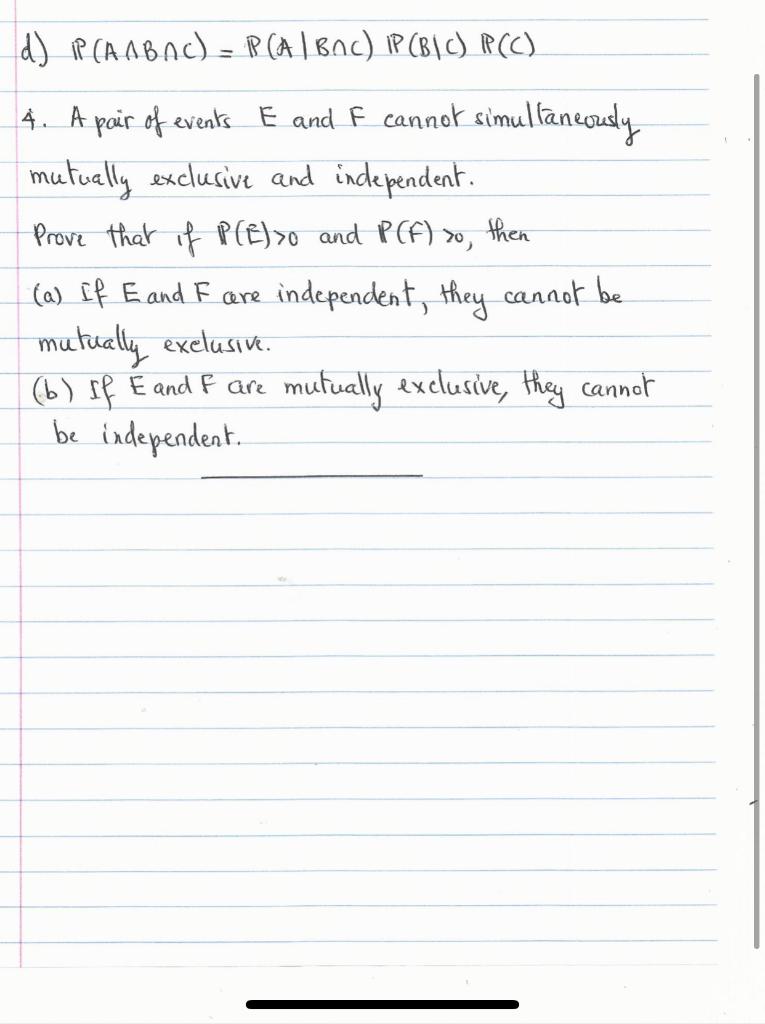 d) ℙ(A∩B∩C) = ℙ(A|B∩C) ℙ(B|C) ℙ(C)
4. A pair of events E and F cannot simultaneously
mutually exclusive and independent.
Prove that if ℙ(E)>0 and ℙ(F)>0, then
(a) If E and F are independent, they cannot be
mutually exclusive.
(b) If E and F are mutually exclusive, they cannot
be independent.